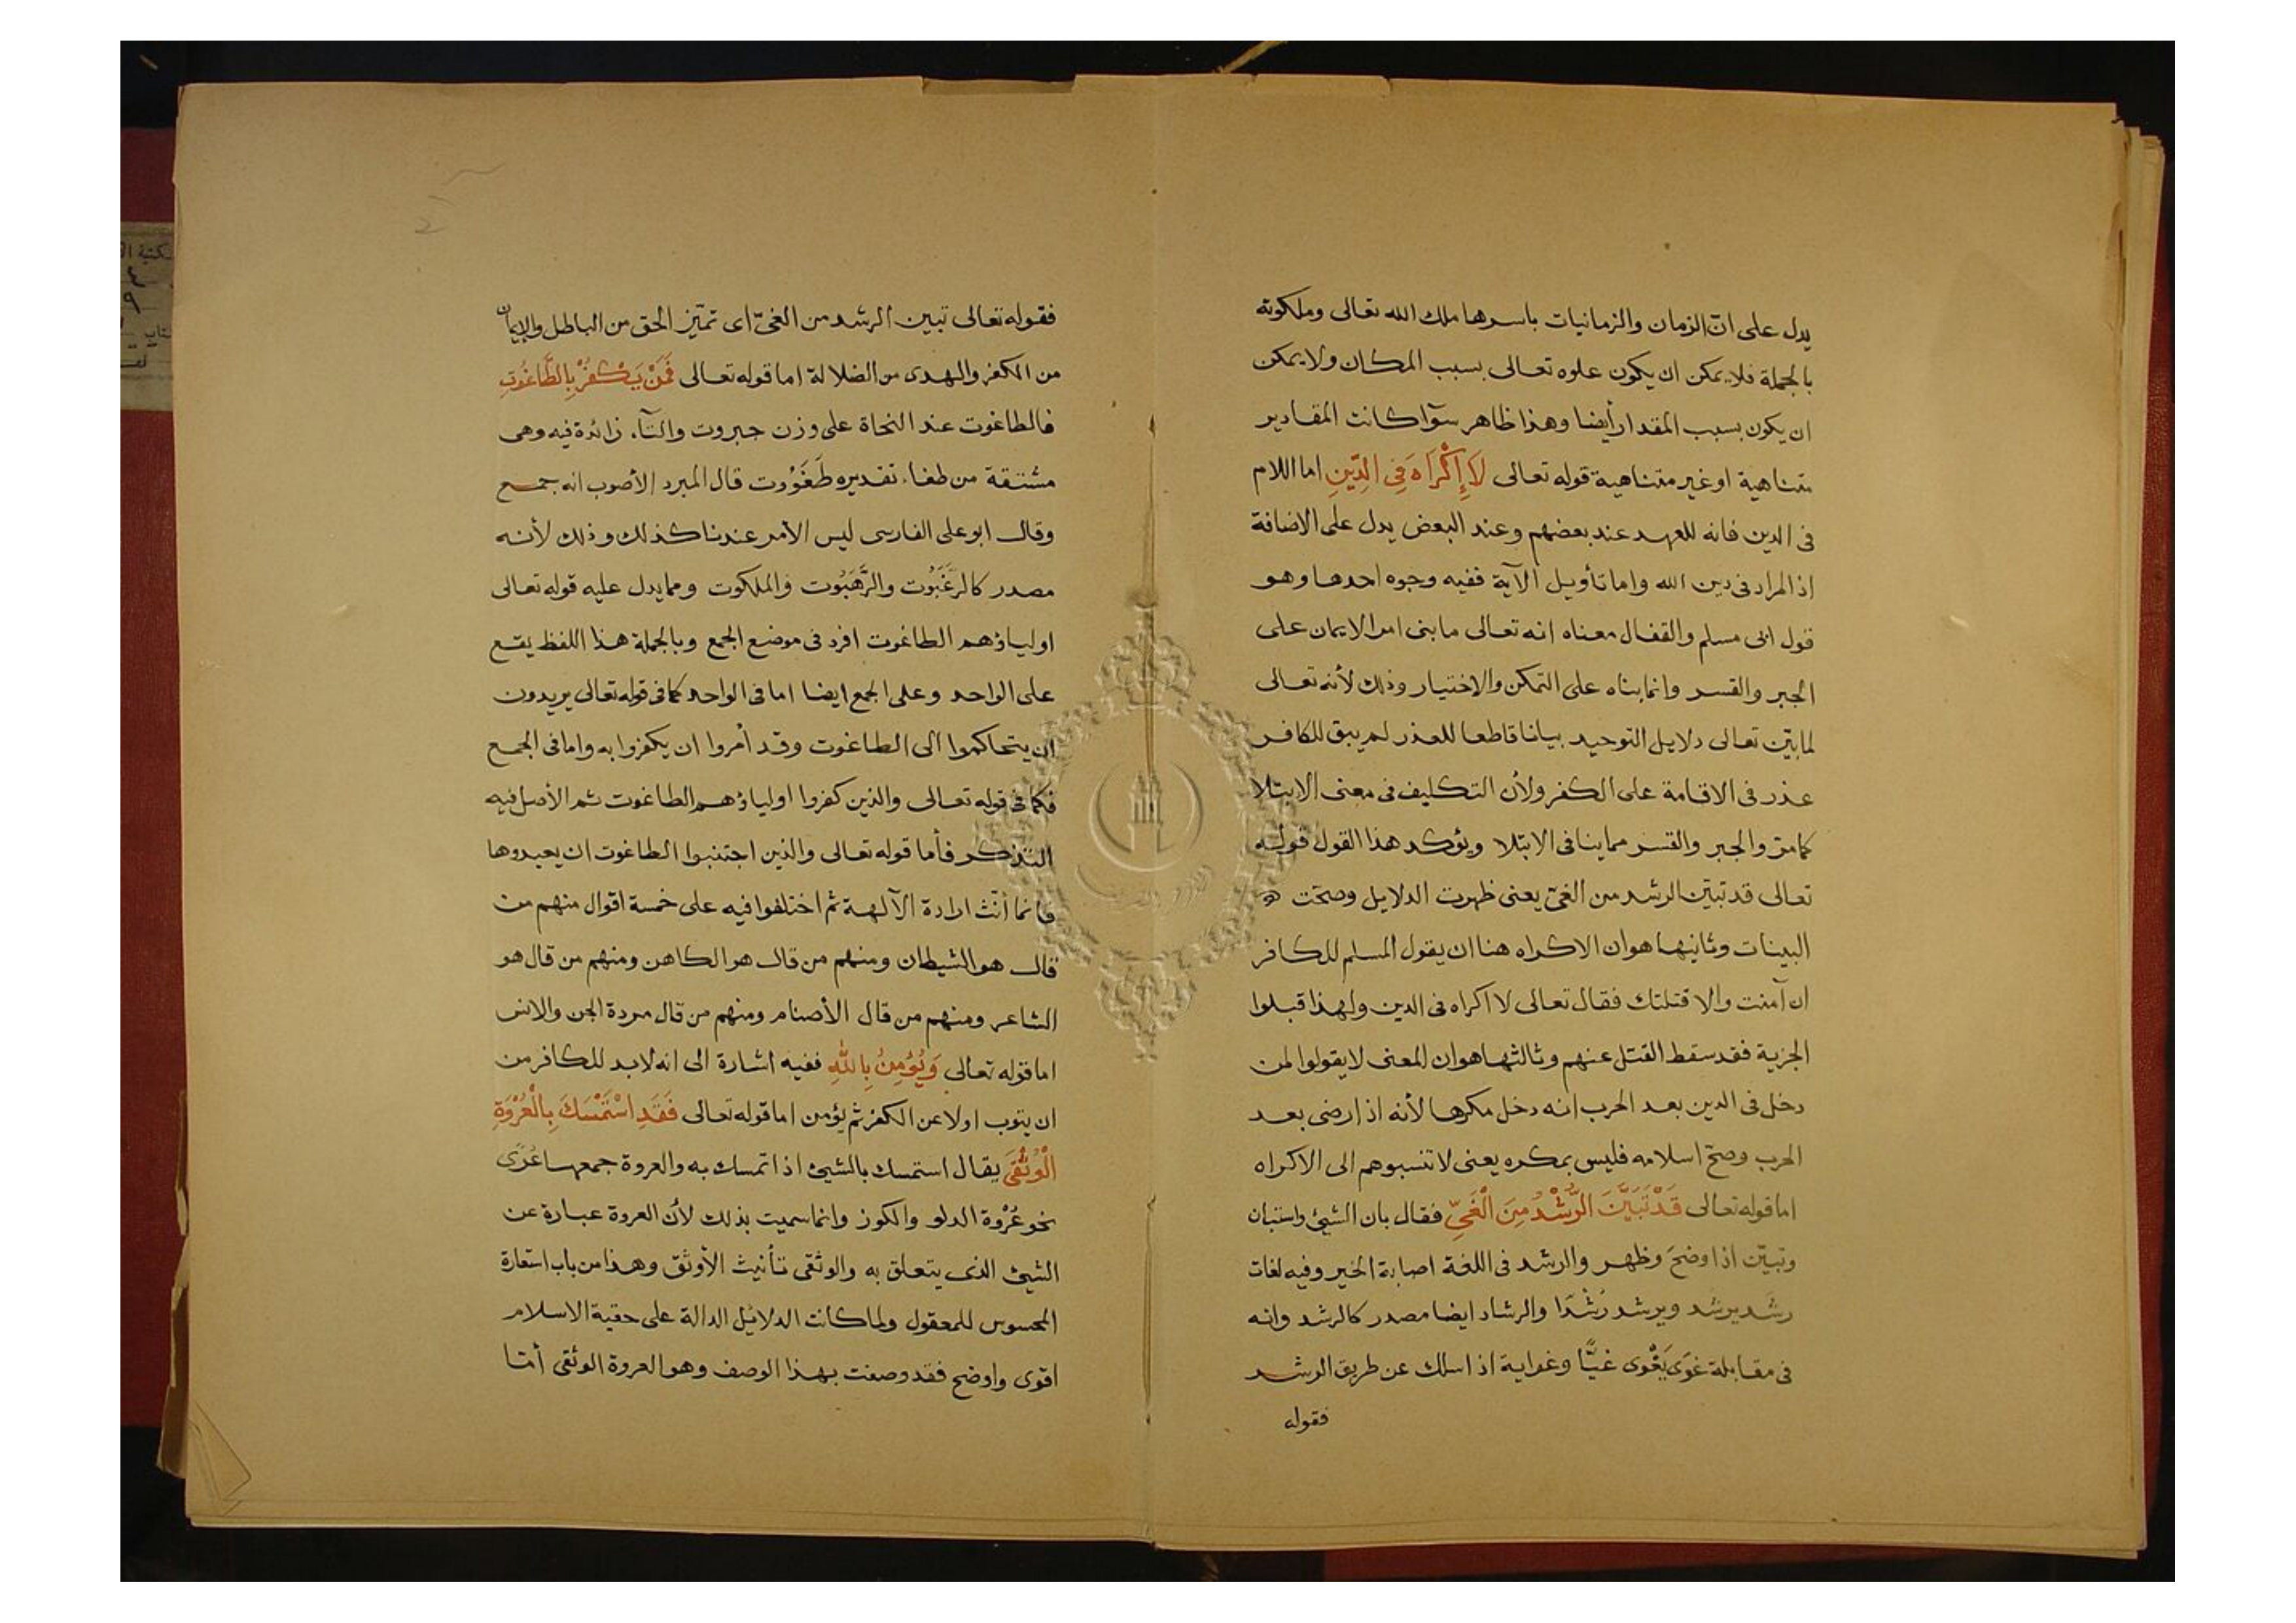 يدل على انّ الزمان والزمانيات باسرها ملك الله تعالى وملكوته
بالجملة فلا يمكن ان يكون علوه تعالى بسبب المكان ولا يمكن
ان يكون بسبب المقدار أيضا وهذا ظاهر سوآ كانت المقادير
متناهية او غير متناهية قوله تعالى لَا إِكْرَاهَ فِي الدِّينِ اما اللام
فى الدين فانه للعهد عند بعضهم وعند البعض يدل على الاضافة
اذ المراد فى دين الله واما تأويل الآية ففيه وجوه احدها وهو
قول ابى مسلم والقفال معناه انه تعالى ما بنى امر الايمان على
الجبر والقسر وانما بناه على التمكن والاختيار وذلك لأنه تعالى
لما بيّن تعالى دلايل التوحيد بيانا قاطعا للعذر لم يبق للكافر
عذر فى الاقامة على الكفر ولأن التكليف فى معنى الابتلا
كما مرّ والجبر والقسر مما ينافى الابتلا ويؤكد هذا القول قوله
تعالى قد تبيّن الرشد من الغىّ يعنى ظهرت الدلايل وصحّت
البينات وثانيها هو ان الاكراه هنا ان يقول المسلم للكافر
ان آمنت والا قتلتك فقال تعالى لا اكراه فى الدين ولهذا قبلوا
الجزية فقد سقط القتل عنهم وثالثها هو ان المعنى لا يقولوا لمن
دخل فى الدين بعد الحرب انه دخل مكرها لأنه اذا رضى بعد
الحرب وصحّ اسلامه فليس بمكره يعنى لا تنسبوهم الى الاكراه
اما قوله تعالى قَدْ تَبَيَّنَ الرُّشْدُ مِنَ الْغَيِّ فقال بان الشيئ واستبان
وتبيّن اذا وضحَ وظهر والرشد فى اللغة اصابة الخير وفيه لغات
رشَد يرشُد ويرشد رُشْدًا والرشاد ايضا مصدر كالرشد وانه
فى مقابلة غوَى يَغْوى غيًّا وغواية اذا سلك عن طريق الرشد
فقوله
فقوله تعالى تبين الرشد من الغىّ اى تميّز الحق من الباطل والايمان
من الكفر والهدى من الضلالة اما قوله تعالى فَمَنْ يَكْفُرْ بِالطَّاغُوتِ
فالطاغوت عند النحاة على وزن جبروت والتآء زائدة فيه وهى
مشتقة من طغا، تقديره طَغَوُوت قال المبرد الأصوب انه جمع
وقال ابو على الفارسى ليس الأمر عندنا كذلك وذلك لأنه
مصدر كالرَّغَبُوت والرَّهَبُوت والملكوت ومما يدل عليه قوله تعالى
اولياؤهم الطاغوت افرد فى موضع الجمع وبالجملة هذا اللفظ يقع
على الواحد وعلى الجمع ايضا اما فى الواحد كما فى قوله تعالى يريدون
ان يتحاكموا الى الطاغوت وقد أمروا ان يكفروا به واما فى الجمع
فكما فى قوله تعالى والذين كفروا اولياؤهم الطاغوت ثم الأصل فيه
التذكر فأما قوله تعالى والذين اجتنبوا الطاغوت ان يعبدوها
فانما أنّث ارادة الآلهة ثم اختلفوا فيه على خمسة اقوال منهم من
قال هو الشيطان ومنهم من قال هو الكاهن ومنهم من قال هو
الشاعر ومنهم من قال الأصنام ومنهم من قال مردة الجن والانس
اما قوله تعالى وَيُؤْمِنُ بِاللهِ ففيه اشارة الى انه لابد للكافر من
ان يتوب اولا عن الكفر ثم يؤمن اما قوله تعالى فَقَدِ اسْتَمْسَكَ بِالْعُرْوَةِ
الْوُثْقَى يقال استمسك بالشيئ اذا تمسك به والعروة جمعها عُرًى
نحو عُرْوة الدلو والكوز وانما سميت بذلك لأن العروة عبارة عن
الشيئ الذى يتعلق به والوثقى تأنيث الأوثق وهذا من باب استعارة
المحسوس للمعقول ولما كانت الدلائل الدالة على حقية الاسلام
اقوى واوضح فقد وصفت بهذا الوصف وهو العروة الوثقى أمّا